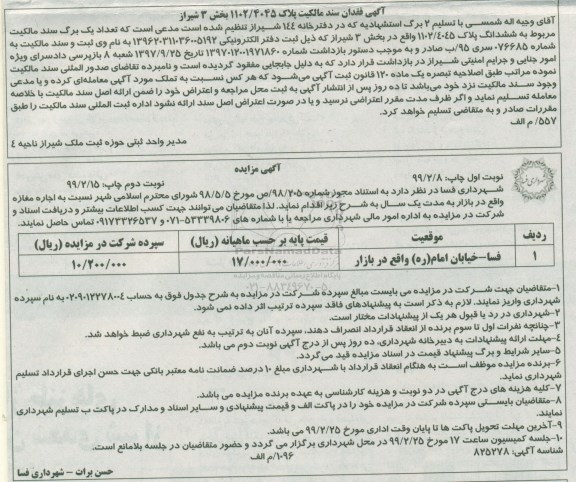 آگهی فقدان سند مالکیت پلاک ۱۱۰۲/۴۰۴۵ بخش ۳ شیراز
آقای وجیه اله شمسی با تسلیم ۲ برگ استشهادیه که در دفترخانه ۱٤٤ شیراز تنظیم شده است مدعی است که تعداد یک برگ سند مالکیت
مربوط به ششدانگ پلاک ۱۱۰۲/٤۰٤۵ واقع در بخش ۳ شیراز که ذیل ثبت دفتر الکترونیکی ۱۳۹۶۲۰۳۱۱۰۳۶۰۰۵۱۹۲ به نام وی ثبت و سند مالکیت به
شماره ۰۷۶۶۸۵ سری ۹۵/ب صادر و به موجب دستور بازداشت شماره ۱۳۹۷۲۰۱۲۰۰۱۹۷۱۸۶۰ تاریخ ۱۳۹۷/۹/۲۵ شعبه ۸ بازپرسی دادسرای ویژه
امور جنایی و جرایم امنیتی شیراز در بازداشت قرار دارد که به دلیل جابجایی مفقود گردیده است و نامبرده تقاضای صدور المثنی سند مالکیت
نموده مراتب طبق اصلاحیه تبصره یک ماده ۱۲۰ قانون ثبت آگهی می‌شود که هر کس نسبت به تملک مورد آگهی معامله‌ای کرده و یا مدعی
وجود سند مالکیت نزد خود می‌باشد تا ده روز پس از انتشار آگهی به ثبت محل مراجعه و اعتراض خود را ضمن ارائه اصل سند مالکیت یا خلاصه
معامله تسلیم نماید و اگر ظرف مدت مقرر اعتراضی نرسید و یا در صورت اعتراض اصل سند ارائه نشود اداره ثبت المثنی سند مالکیت را طبق
مقررات صادر و به متقاضی تسلیم خواهد کرد.
۵۵۷/ م الف
مدیر واحد ثبتی حوزه ثبت ملک شیراز ناحیه ٤
آگهی مزایده
نوبت اول چاپ: ۹۹/۲/۸ نوبت دوم چاپ: ۹۹/۲/۱۵
شهرداری فسا در نظر دارد به استناد مجوز شماره ۹۸/۲۰۵/ص مورخ ۹۸/۵/۵ شورای محترم اسلامی شهر نسبت به اجاره مغازه
واقع در بازار به مدت یک سال به شرح زیر اقدام نماید. لذا متقاضیان می توانند جهت کسب اطلاعات بیشتر و دریافت اسناد و
شرکت در مزایده به اداره امور مالی شهرداری مراجعه یا با شماره های ۵۳۳۳۹۸۰۶-۰۷۱ و ۰۹۱۷۳۳۲۶۵۳۷ تماس حاصل نمایند.
ردیف موقعیت قیمت پایه بر حسب ماهیانه (ریال) سپرده شرکت در مزایده (ریال)
۱ فسا-خیابان امام(ره) واقع در بازار ۱۷/۰۰۰/۰۰۰ ۱۰/۲۰۰/۰۰۰
ParsNamadData
۰۲۱-۸۸۳۴۹۶۷۰-۵
۱-متقاضیان جهت شرکت در مزایده می بایست مبالغ سپرده شرکت در مزایده به شرح جدول فوق به حساب ۰۲۰۹۰۱۲۲۷۸۰۰٤ به نام سپرده
شهرداری واریز نمایند. لازم به ذکر است به پیشنهادهای فاقد سپرده ترتیب اثر داده نمی شود.
۲-شهرداری در رد یا قبول هر یک از پیشنهادات مختار است.
۳-چنانچه نفرات اول تا سوم برنده از انعقاد قرارداد انصراف دهند، سپرده آنان به ترتیب به نفع شهرداری ضبط خواهد شد.
٤-مهلت ارائه پیشنهادات به دبیرخانه شهرداری، ده روز پس از درج آگهی نوبت دوم می باشد.
۵-سایر شرایط و برگ پیشنهاد قیمت در اسناد مزایده قید می گردد.
۶-برنده مزایده موظف است به هنگام انعقاد قرارداد با شهرداری مبلغ ۱۰ درصد ضمانت نامه معتبر بانکی جهت حسن اجرای قرارداد تسلیم
شهرداری نماید.
۷-کلیه هزینه های درج آگهی در دو نوبت و هزینه کارشناسی به عهده برنده مزایده می باشد.
۸-متقاضیان بایستی سپرده شرکت در مزایده خود را در پاکت الف و قیمت پیشنهادی و سایر اسناد و مدارک در پاکت ب تسلیم شهرداری
نمایند.
۹-آخرین مهلت تحویل پاکت ها تا پایان وقت اداری مورخ ۹۹/۲/۲۵ می باشد.
۱۰-جلسه کمیسیون ساعت ۱۷ مورخ ۹۹/۲/۲۵ در محل شهرداری برگزار می گردد و حضور متقاضیان در جلسه بلامانع است.
شناسه آگهی: ۸۲۵۲۷۸ ۱۰۹۶/م الف
حسن برات – شهرداری فسا